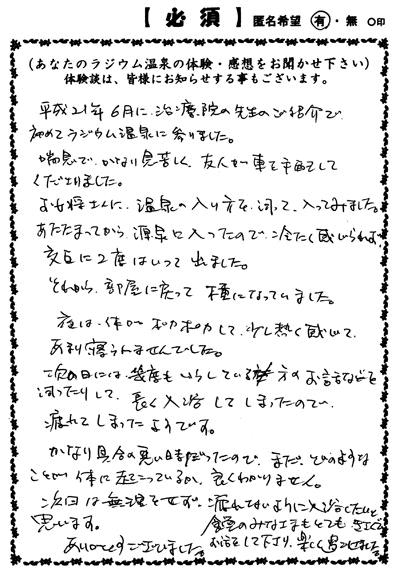 【必須】 匿名希望 有・無 ○印
(あなたのラジウム温泉の体験・感想をお聞かせ下さい)
体験談は、皆様にお知らせする事もございます。
平成21年6月に、治療院の先生のご紹介で
初めてラジウム温泉に参りました。
喘息で、かなり息苦しく、友人が車を手配して
くださりました。
お女将さんに、温泉の入り方を、伺って、入ってみました。
あたたまってから、源泉に入ったので、冷たく感じられず、
交互に2度はいって出ました。
それから、部屋に戻って 横になっていました。
夜は、体が ポカポカして、少し熱く感じて、
あまり寝られませんでした。
次の日には、幾度もいらしている方のお話などを
伺ったりして、長く入浴してしまったので、
疲れてしまったようです。
かなり具合の悪い時だったので、まだ、どのような
ことが体に起こっているか、良くわかりません。
次回は無理をせず、疲れないように入浴したいと
思います。
食堂のみなさまもとても きさくに
お話をして下さり、楽しく過ごせました。
ありがとうございました。